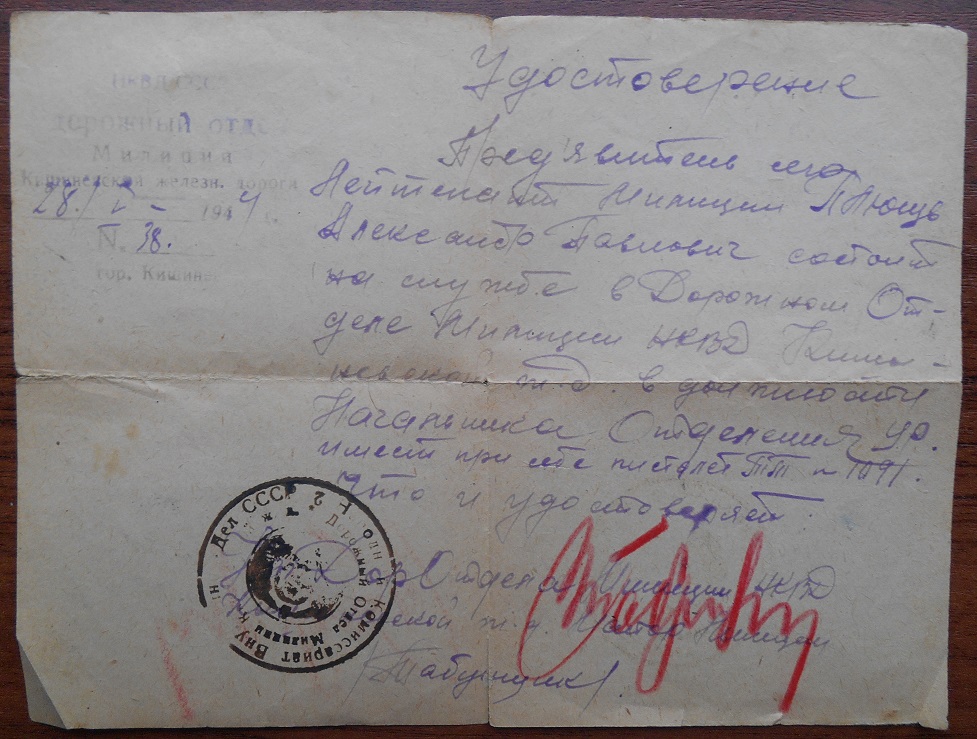 дорожный отде
Милиции
Кишиневской железн. дороги
28/V – 1944 г.
№ 38.
гор. Кишине
Удостоверение
Пред'явитель сего
Лейтенант Милиции
Александр Павлович состоит
на службе в Дорожном От-
деле Милиции НКВД Кише-
невской ж.д. в должности
Начальника Отделения УР.
имеет при себе пистолет ТТ №
Что и удостоверяет
Дор Отдела Милиции НКВД
ской ж.д. Майор Милиции
Дел СССР
Комиссариат Вну
Дорожный Отдел Милиции